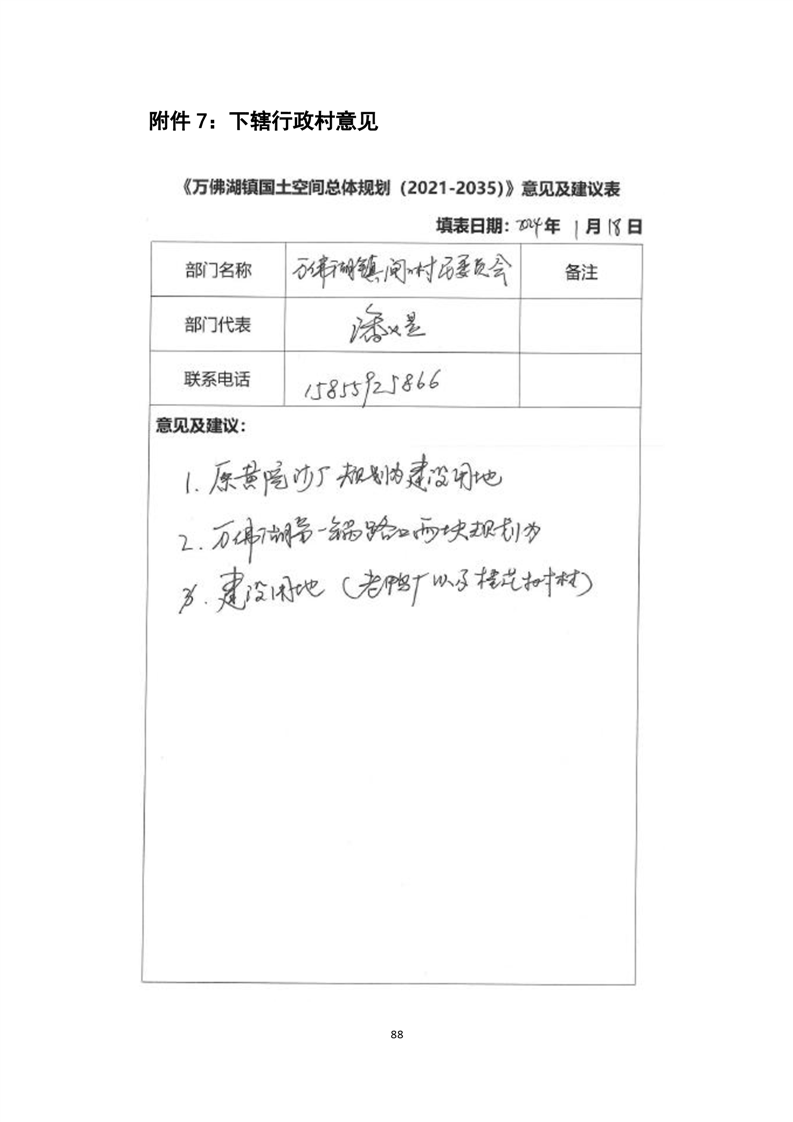 附件 7：下辖行政村意见
《万佛湖镇国土空间总体规划（2021-2035）》意见及建议表
填表日期：2024年 1月18日
部门名称 万佛湖镇 村委会 备注
部门代表 潘
联系电话 15855925866
意见及建议：
1. 原黄院沙厂规划为建设用地
2. 万佛湖第一锅路口两块规划为
3. 建设用地（老鸭厂以及桂花树村）
88